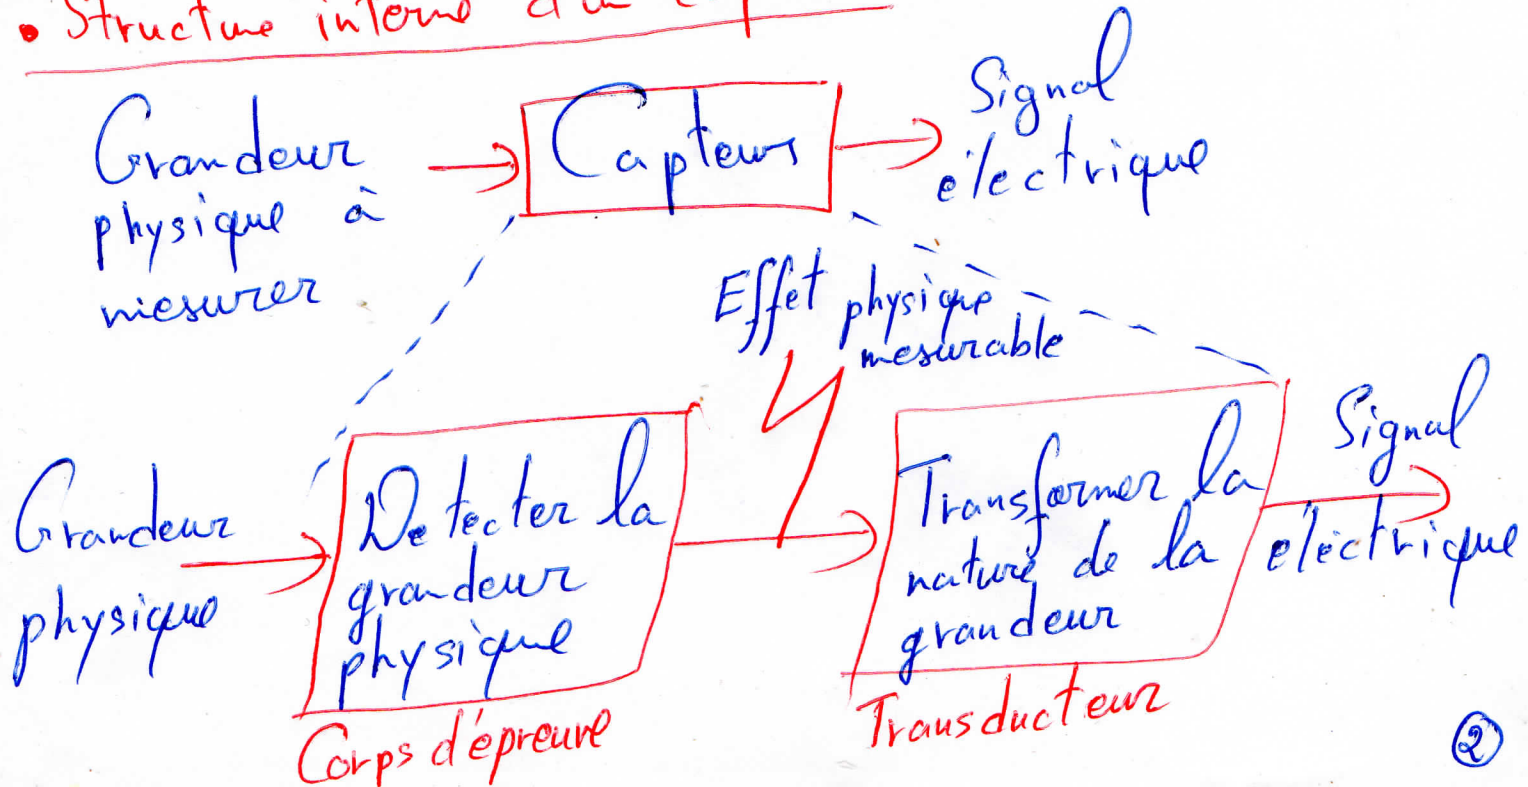 • Structure interne d'un
Grandeur
physique à
mesurer
Capteurs
Signal
électrique
Effet physique
mesurable
Grandeur
physique
Detecter la
grandeur
physique
Corps d'épreuve
Transformer la
nature de la
grandeur
Transducteur
Signal
électrique
2